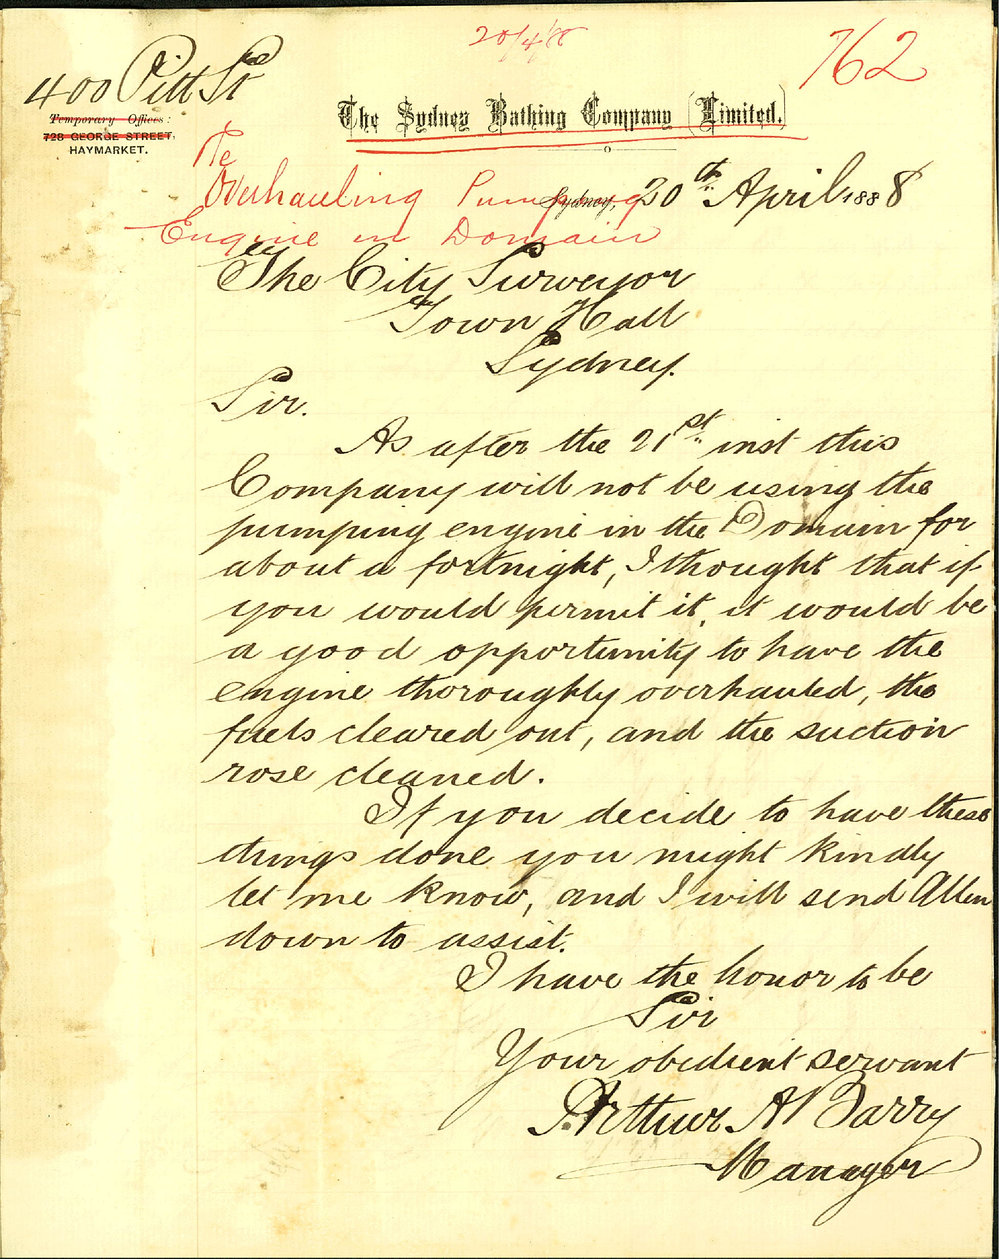 20/4/88
762
400 Pitt St
Temporary Offices:
728 GEORGE STREET,
HAYMARKET.
The Sydney Bathing Company (Limited.)
Re
Overhauling Pumping
Engine in Domain
Sydney, 20th April 1888
The City Surveyor
Town Hall
Sydney.
Sir.
As after the 21st inst this
Company will not be using the
pumping engine in the Domain for
about a fortnight, I thought that if
you would permit it, it would be
a good opportunity to have the
engine thoroughly overhauled, the
fuels cleared out, and the suction
rose cleaned.
If you decide to have these
things done you might kindly
let me know, and I will send Allen
down to assist.
I have the honor to be
Sir
Your obedient servant
Arthur A Barry
Manager